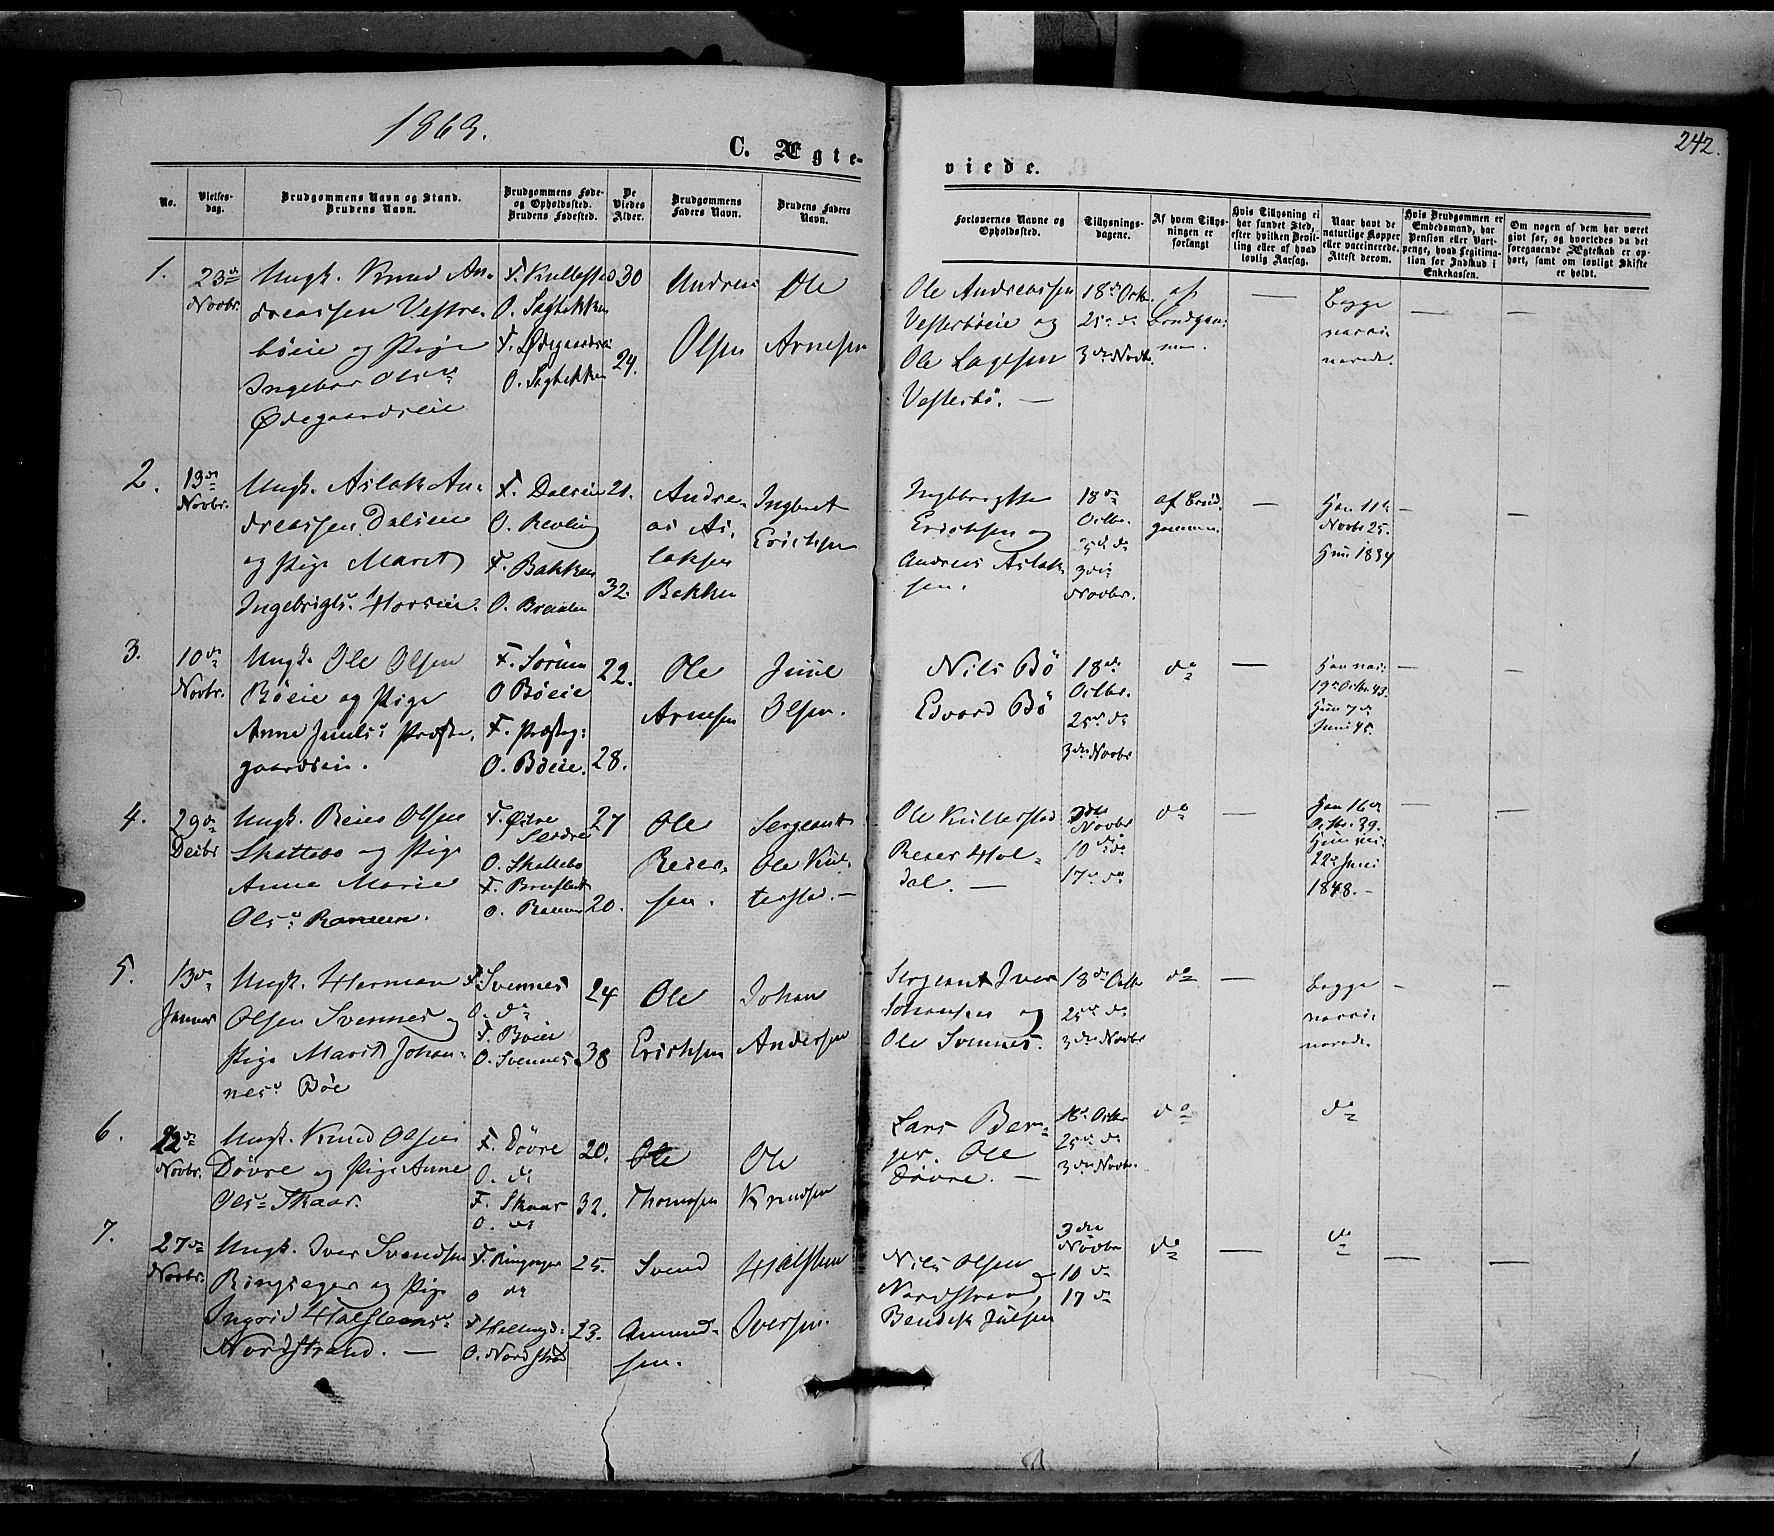 1863.
242.
C. Ægte-
viede.
No.
Vielses-
dag.
Brudgommens Navn og Stand.
Brudens Navn.
Brudgommens Føde-
og Opholdssted.
Brudens Fødested.
De
Viedes
Alder.
Brudgommens
Faders Navn.
Brudens Faders
Navn.
Forlovernes Navne og
Opholdssted.
Tillysnings-
dagene.
Af hvem Tillys-
ningen er
forlangt
Hvis Tillysning ei
har fundet Sted,
efter hvilken Bevil-
ling eller af hvad
lovlig Aarsag.
Naar havt de
naturlige Kopper
eller vaccinerede.
Attest derom.
Hvis Brudgommen er
Embedsmand, har
Pension eller Vart-
penge, hvad Legitima-
tion for Indskud i
Enkekassen.
Om nogen af dem har været
gift før, og hvorledes da det
foregaaende Ægteskab er op-
hørt, samt om lovligt Skifte
er holdt.
1.
23de
Novbr.
Ungk. Knud An-
dreassen Vestre-
böeie og Pige
Ingebor Olsd.
Ødegaardseie
O. Sagbakken
F. Ødegaardsei
O. Sagbakken
30
24.
Andreas
Olsen
Ole
Arnesen
Ole Andreassen
Vesterböeie og
Ole Lagesen
Vesterbö. —
18de Octb.
25de do
3die Novbr.
af
Brudgom-
men.
—
Begge
—
—
2.
13de
Novbr.
Ungk. Aslak An-
dreassen Dalseie
og Pige Marit
Ingebrigtsd.
F. Dalseie
O. Revling
F. Bakken
21.
32.
Andre-
as As-
laksen
Bakken
Ingbret
Erichsen
Erichsen og
Andreas Aslak-
sen.
18de
Octbr.
25de do
3die
Novbr.
af Brud-
gommen.
—
Han 11te
Novbr 25.
Hun 1834
—
—
3.
10de
Novbr.
Ungk. Ole Olsen
Böeie og Pige
Anne Juulsd. Præste-
gaardseie.
F. Sörum
O Böeie
F. Præsteg:
O. Böeie.
22.
28.
Ole
Arnesen
Juul
Olsen.
Nils Bö
Edvard Bö
18de
Octbr.
25de do
3die Novbr
do
—
19de Octbr. 43.
Hun 7de
Juni 45.
—
—
4.
29de
Decbr
Ungk. Reier Olsen
Skattebo og Pige
Anne Marie
Olsd.
F. Østre
O. Skattebo
27
20.
Ole
Reier-
sen.
Sergeant
Ole Kul-
terstad. —
Ole Kulterstad
Reier Hol-
dal. —
3die
Novbr
10de do
17de do
do
—
Han 16de
Octbr. 39.
22de Juni
1848. —
—
—
5.
13de
Januar
Ungk. Herman
Olsen Svennes og
Pige Marit Johan-
nesd. Böe
F. Svennes
O. do
F. Böeie
O. Svennes
24
38
Ole
Erichsen
Johan
Andersen
Sergeant Iver
Johansen og
Ole Svennes.
18de Octbr
25de do
3die Novbr
do
—
Begge
—
—
6.
22de
Novbr.
Ungk. Knud Olsen
Dövre og Pige Anne
Olsd. Skaar.
F. Dövre
O. do
F. Skaar
O. do
20.
32.
Ole
Thomasen
Ole
Knudsen
Lars Ber-
ger. Ole
Dövre. —
18de Octbr
25de do
3die Novbr.
do
do
7.
27de
Novbr.
Ungk. Iver Svendsen
Ringsager og Pige
Ingrid Halsteensd.
Nordstrand. —
F. Ringsager
O do
O. Nordstrand
25.
23.
Svend
Amund-
sen.
Halsteen
Iversen.
Nils Olsen
Nordstrand,
Bendik Julsen
3die
Novbr
10 do
17 do
do
—
do
—
—